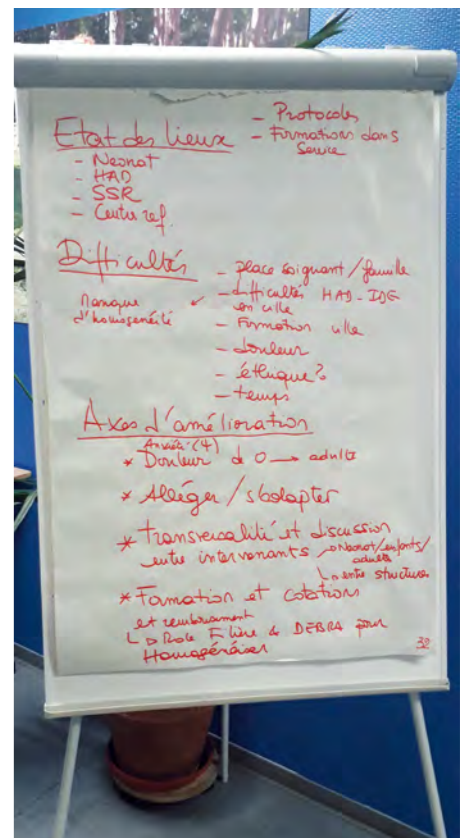 Etat des lieux
- Neonat
- HAD
- SSR
- Centre ref.
- Protocoles
- Formations dans
Service
Difficultés
Manque
d'homogénéité
- place soignant / famille
- difficultés HAD-IDE
en ville
- Formation ville
- douleur
- éthique?
- temps
Axes d'amélioration
Anxiété (4)
* Douleur de 0 → adulte
* Alléger / s'adapter
* transversalité et discussion
entre intervenants → Neonat/enfants/
adultes
↳ entre structures
* Formation et cotations
et remboursement
↳ Role Filière & DEBRA pour
Homogénéiser
32